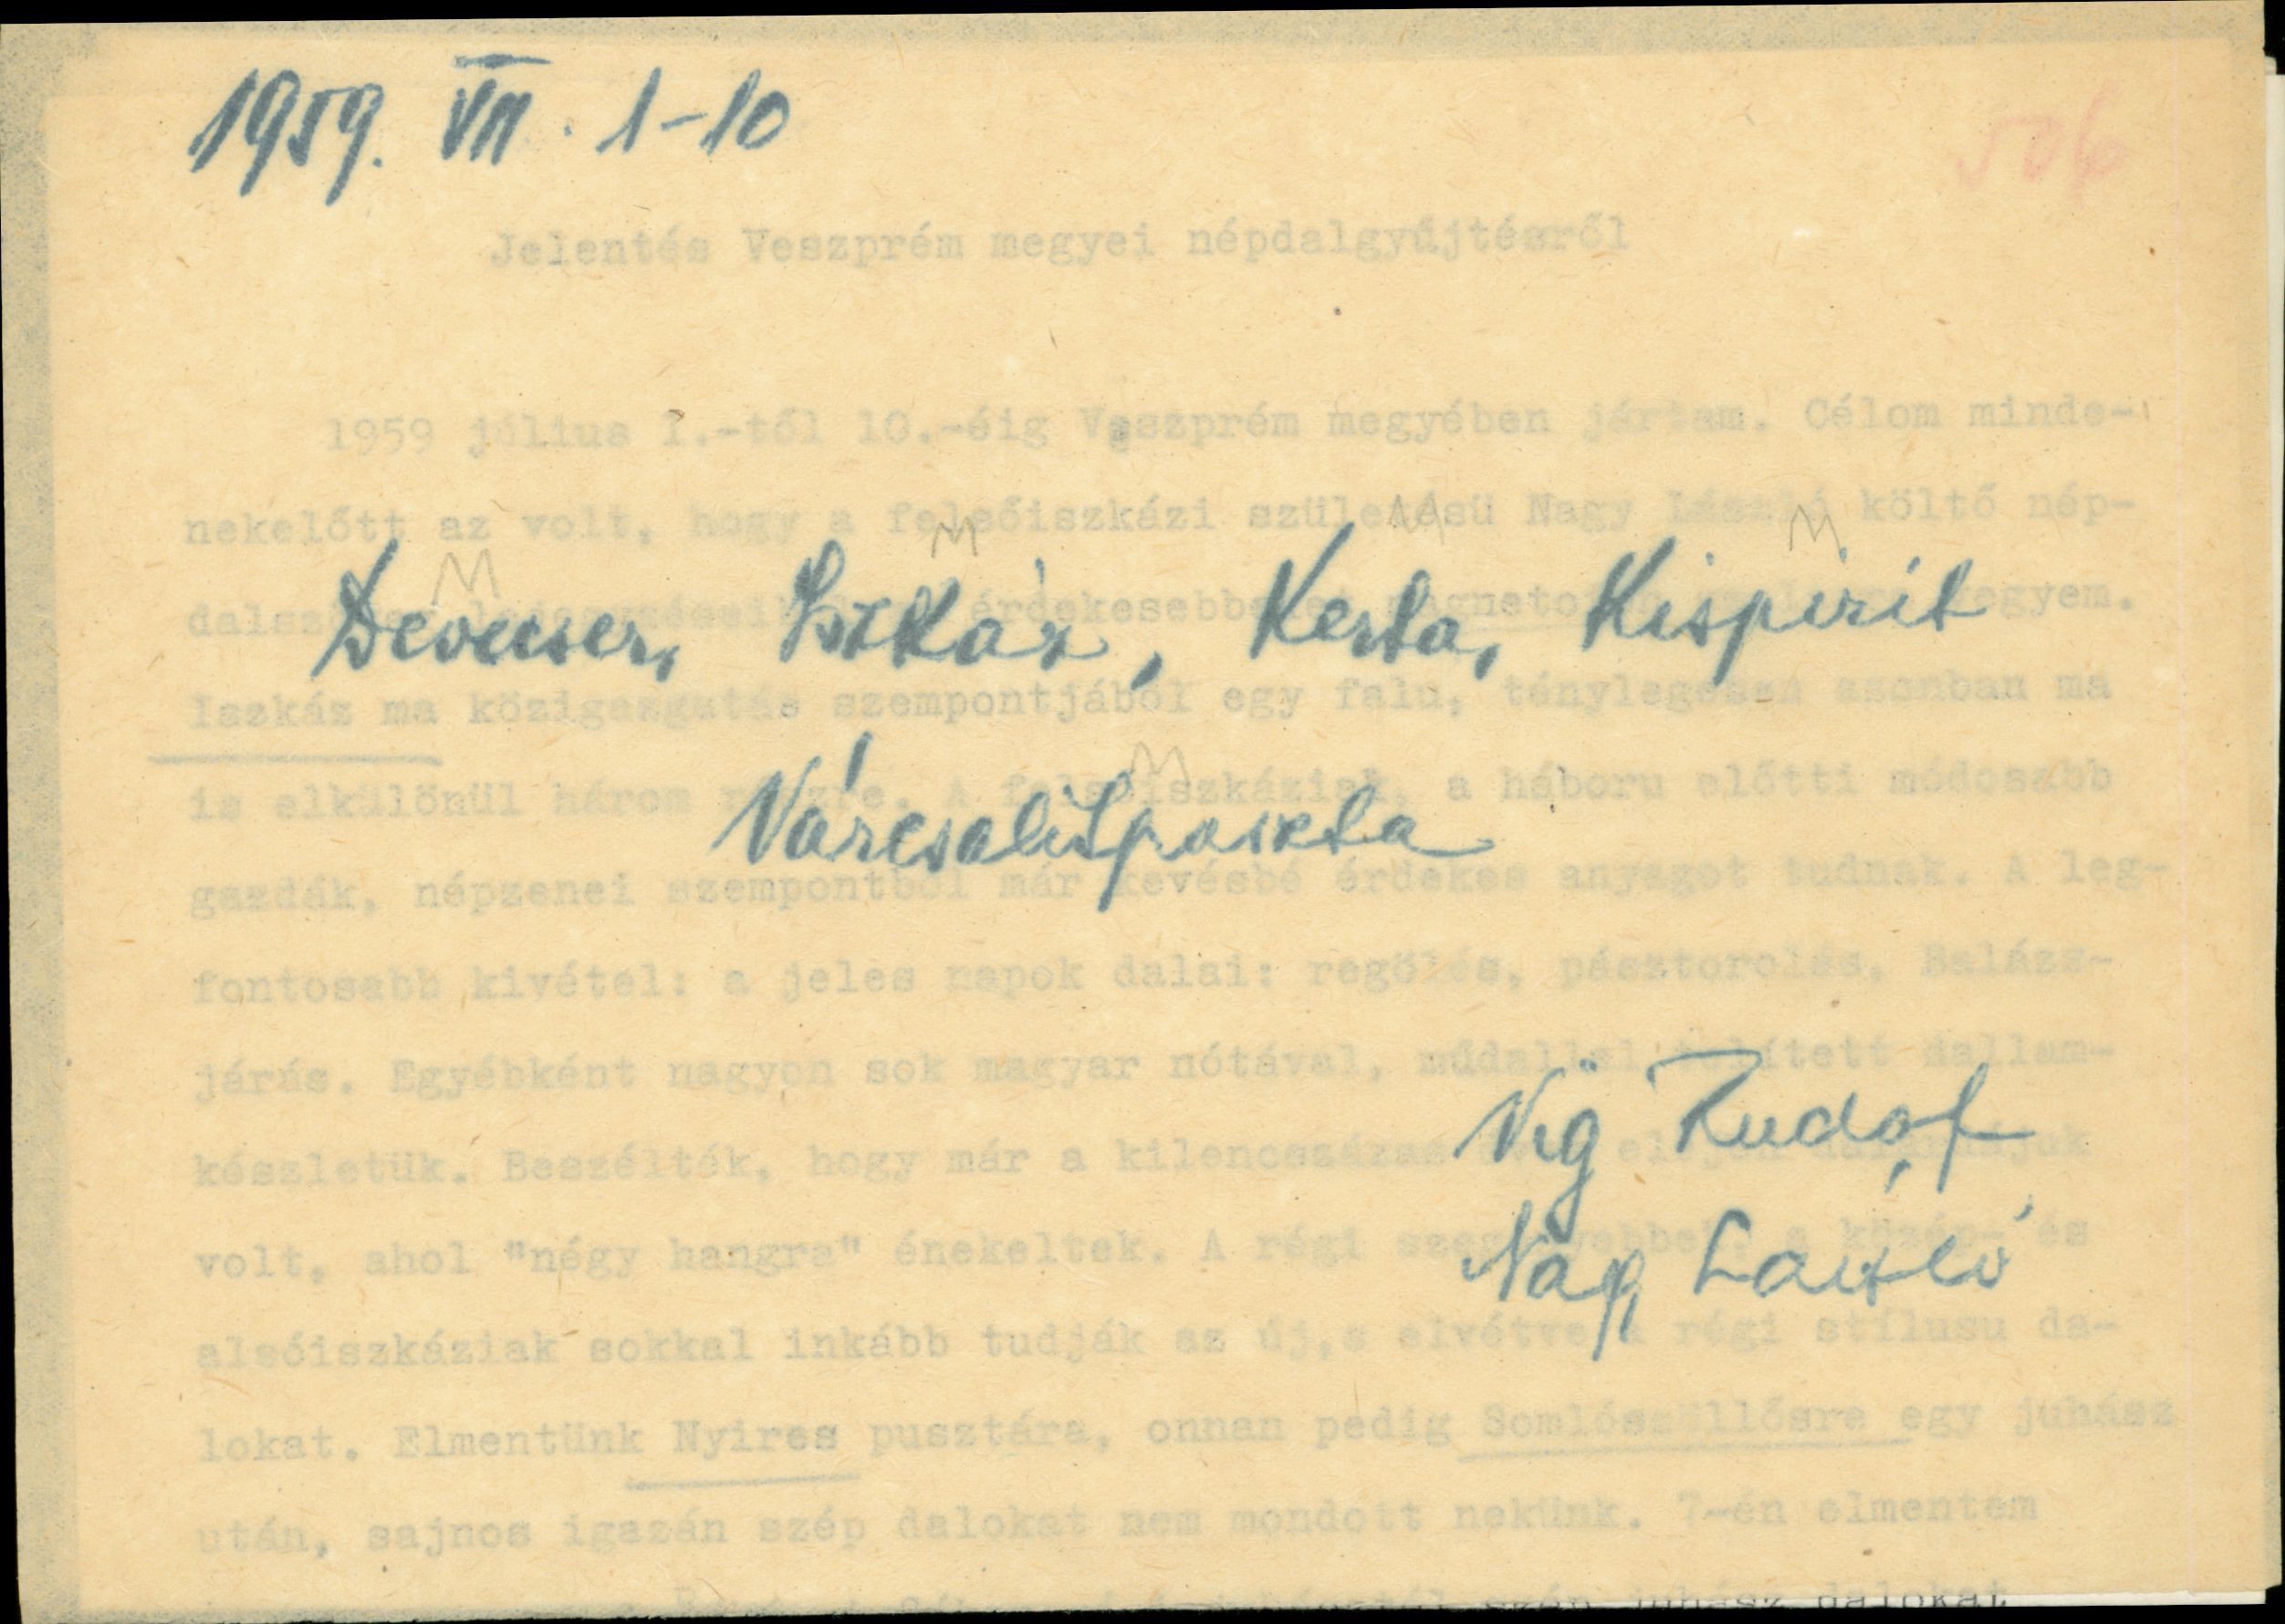 1959. VII. 1-10
506
Jelentés Veszprém megyei népdalgyűjtésről
1959 július 1.-től 10.-éig Veszprém megyében jártam. Célom minde-
nekelőtt az volt, hogy a felsőiszkázi születésü Nagy László költő nép-
M M M M
Devecser, Iszkáz, Kerta, Kispirit
érdekesebb egyem.
Iszkáz ma közigazgatás szempontjából egy falu, ténylegesen azonban ma
M
is elkülönül három részre. A felsőiszkáziak, a háboru előtti módosabb
Várcsalitpuszta
gazdák, népzenei szempontból már kevésbé érdekes anyagot tudnak. A leg-
fontosabb kivétel: a jeles napok dalai: regölés, pásztorolás, Balázs-
járás. Egyébként nagyon sok magyar nótával, műdallal telített dallam-
Víg Rudolf
készletük. Beszélték, hogy már a kilencszázas elején dalárdájuk
volt, ahol "négy hangra" énekeltek. A régi a közép- és
Nagy László
alsóiszkáziak sokkal inkább tudják az új,s elvétve a régi stílusu da-
lokat. Elmentünk Nyires pusztára, onnan pedig Somlószőllősre egy juhász
után, sajnos igazán szép dalokat nem mondott nekünk. 7-én elmentem
szép juhász dalokat